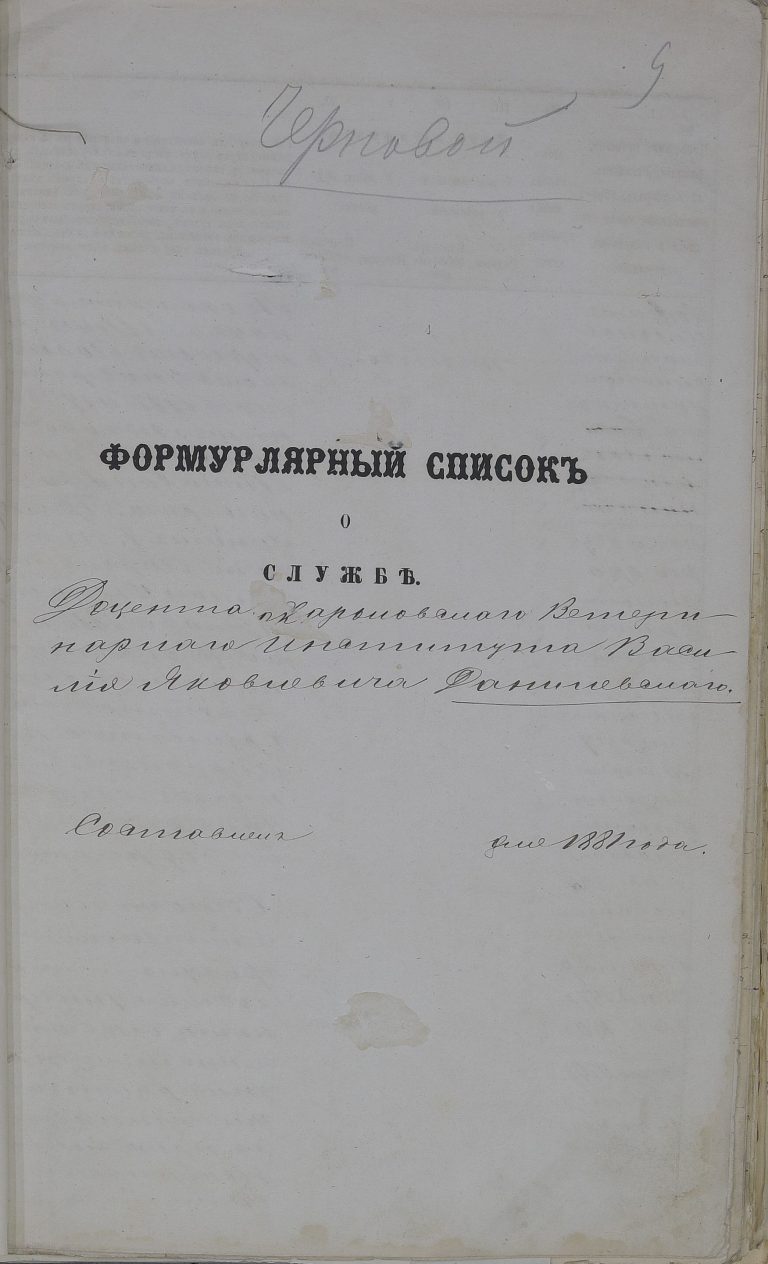 9
Черновой
ФОРМУРЛЯРНЫЙ СПИСОКЪ
О
СЛУЖБѢ.
Доцента Харьковскаго Ветери-
нарнаго Института Васи-
лія Яковлевича Данилевскаго.
Составленъ для 1881 года.